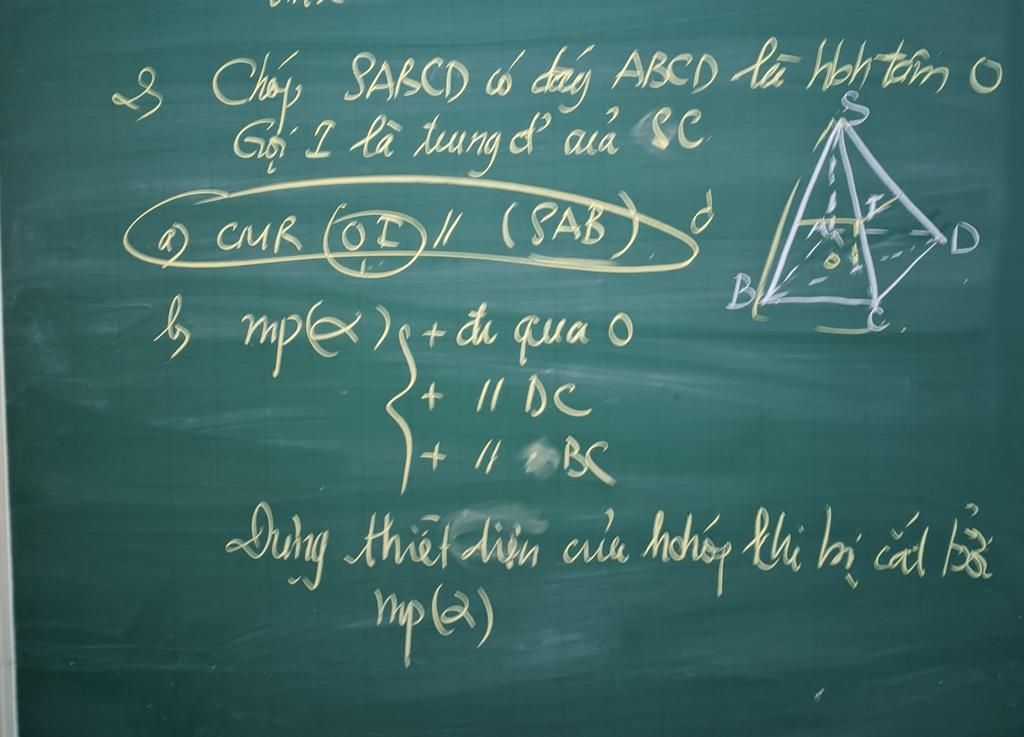 2, Chóp SABCD có đáy ABCD là Hbh tâm O
Gọi I là trung đ' của SC
a) CMR OI // (SAB)
d
S
I
A
D
O
B
C
b, mp(α) { + đi qua O
+ // DC
+ // BC
Dựng thiết diện của hchóp khi bị cắt bởi
mp(α)